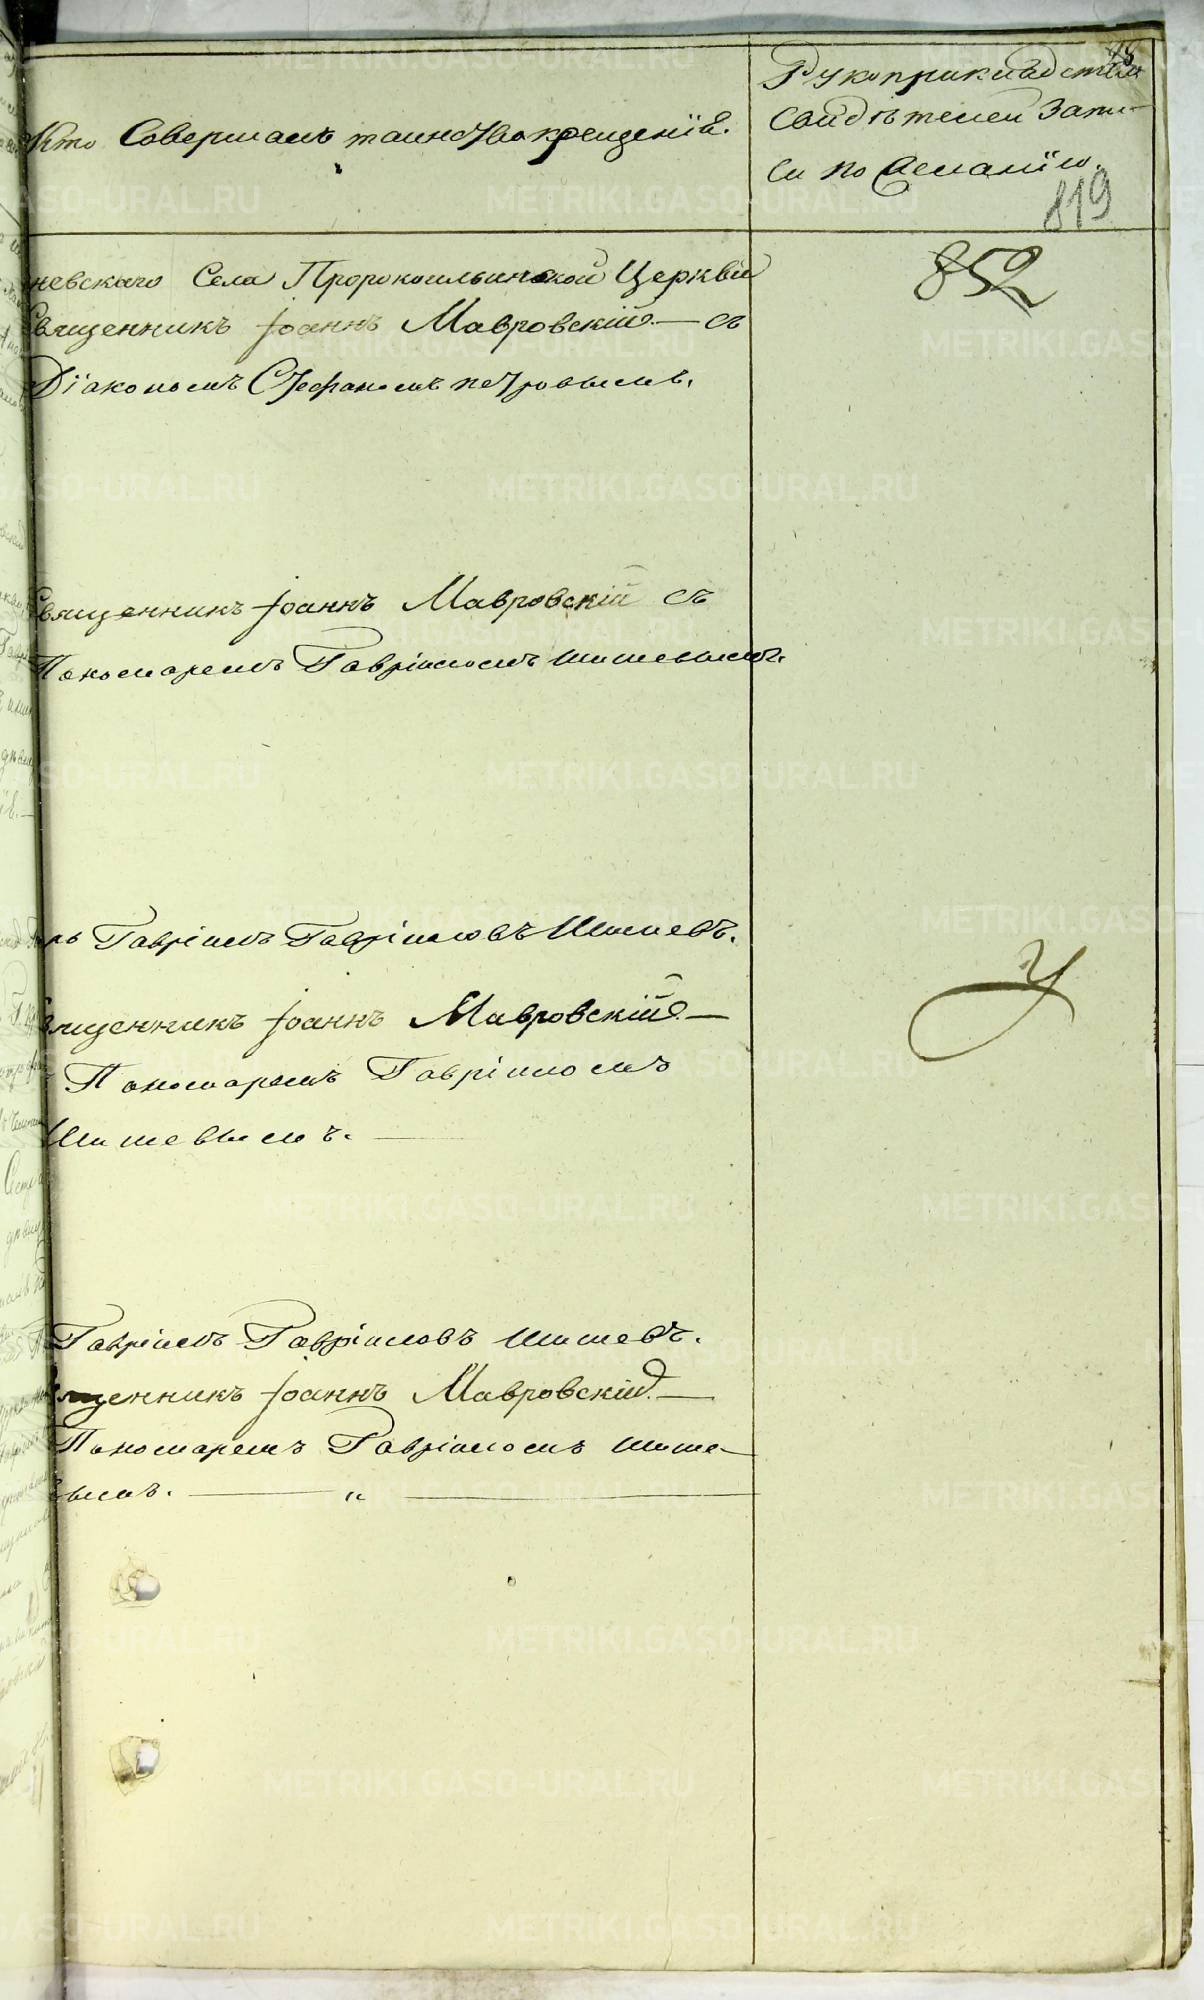 Кто Совершалъ таинство крещенія.
Рукоприкладство
Свидѣтелей Запи-
си по желанію.
819
852
невскаго Села Пророкоильинской Церкви
Священникъ Іоаннъ Мавровскій — съ
Діакономъ Стефаномъ Петровымъ.
Священникъ Іоаннъ Мавровскій съ
Пономаремъ Гавріиломъ Шишевымъ.
рь Гавріилъ Гавріиловъ Шишевъ.
Священникъ Іоаннъ Мавровскій. —
Пономаремъ Гавріиломъ
Шишевымъ. —
У
Гавріилъ Гавріиловъ Шишевъ.
щенникъ Іоаннъ Мавровскій. —
Пономаремъ Гавріиломъ Шише-
вымъ. — „ —
METRIKI.GASO-URAL.RU